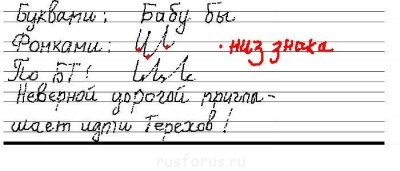 Буквами: Бабу бы
Фонками: · низ знака
По БТ!
Неверной дорогой пригла-
шает идти Терехов!
rusforus.ru